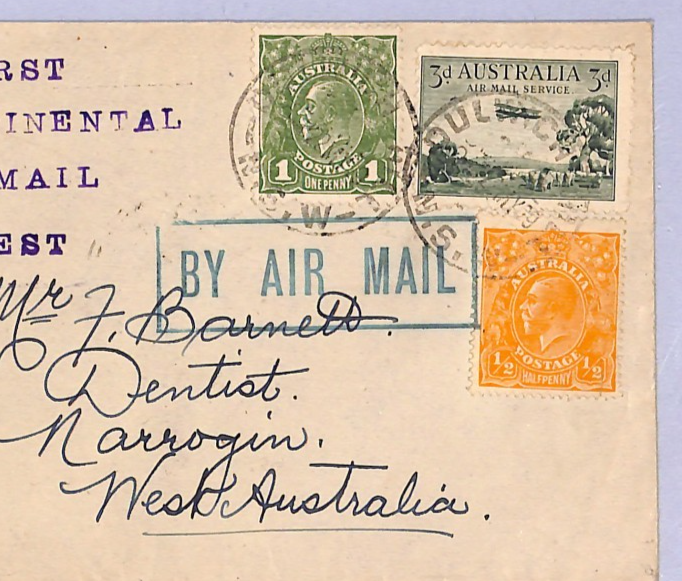 RST
INENTAL
MAIL
EST
AUSTRALIA
1 POSTAGE 1
ONE PENNY
3d AUSTRALIA 3d
AIR MAIL SERVICE
N.S.W
BY AIR MAIL
AUSTRALIA
POSTAGE
1/2 HALFPENNY 1/2
Mr F. Barnett.
Dentist.
Narrogin.
West Australia.